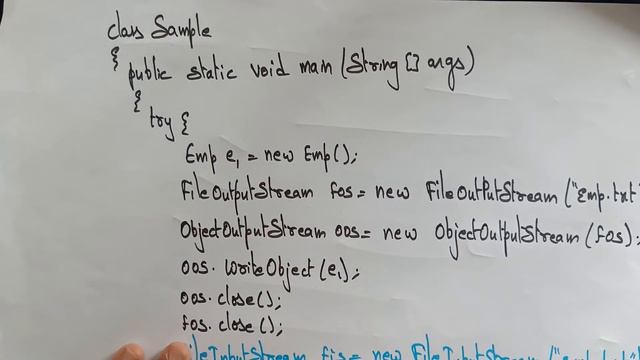 class Sample
{ public static void main (String [] args)
{
try {
Emp e1 = new Emp();
FileOutputStream fos = new FileOutPutStream ("Emp.txt"
ObjectOutputStream oos = new ObjectOutputStream (fos);
oos. writeObject (e1);
oos. close();
fos. close ();
FileInputStream fis = new FileInputStream